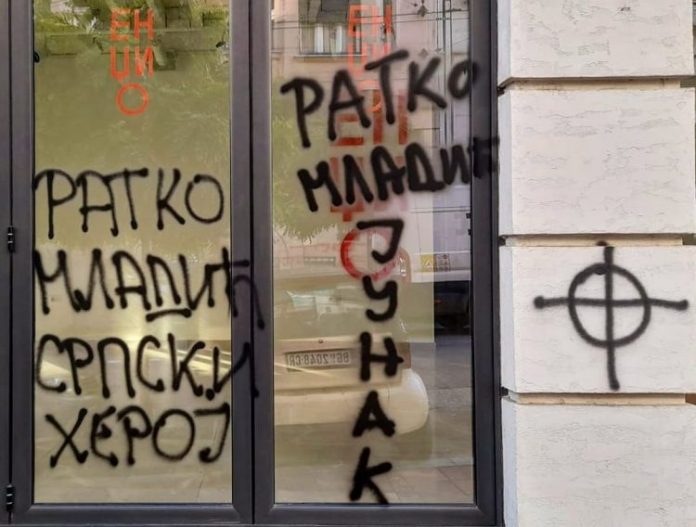 ЕН
ЦИ
О
РАТКО
МЛАДИЋ
СРПСКИ
ХЕРОЈ
ЕН
ЦИ
О
РАТКО
МЛАДИЋ
ЈУНАК